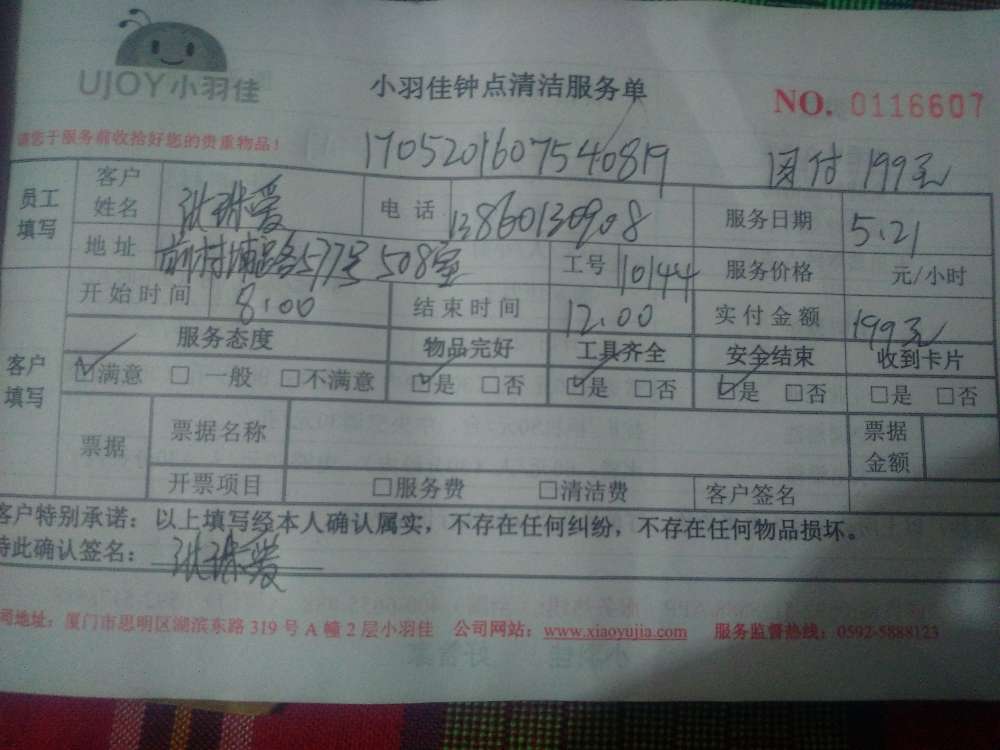 UJOY小羽佳
小羽佳钟点清洁服务单
NO. 0116607
请您于服务前收拾好您的贵重物品!
1705201607540819 团付 199元
员工填写 客户姓名 张琳爱 电话 13860130908 服务日期 5.21
地址 前村埔路577号508室 工号 10144 服务价格 元/小时
开始时间 8:00 结束时间 12:00 实付金额 199元
客户填写 服务态度 物品完好 工具齐全 安全结束 收到卡片
☑满意 □一般 □不满意 ☑是 □否 ☑是 □否 ☑是 □否 □是 □否
票据 票据名称 票据金额
开票项目 □服务费 □清洁费 客户签名
客户特别承诺：以上填写经本人确认属实，不存在任何纠纷，不存在任何物品损坏。
特此确认签名： 张琳爱
司地址：厦门市思明区湖滨东路 319 号 A 幢 2 层小羽佳 公司网站：www.xiaoyujia.com 服务监督热线：0592-5888123